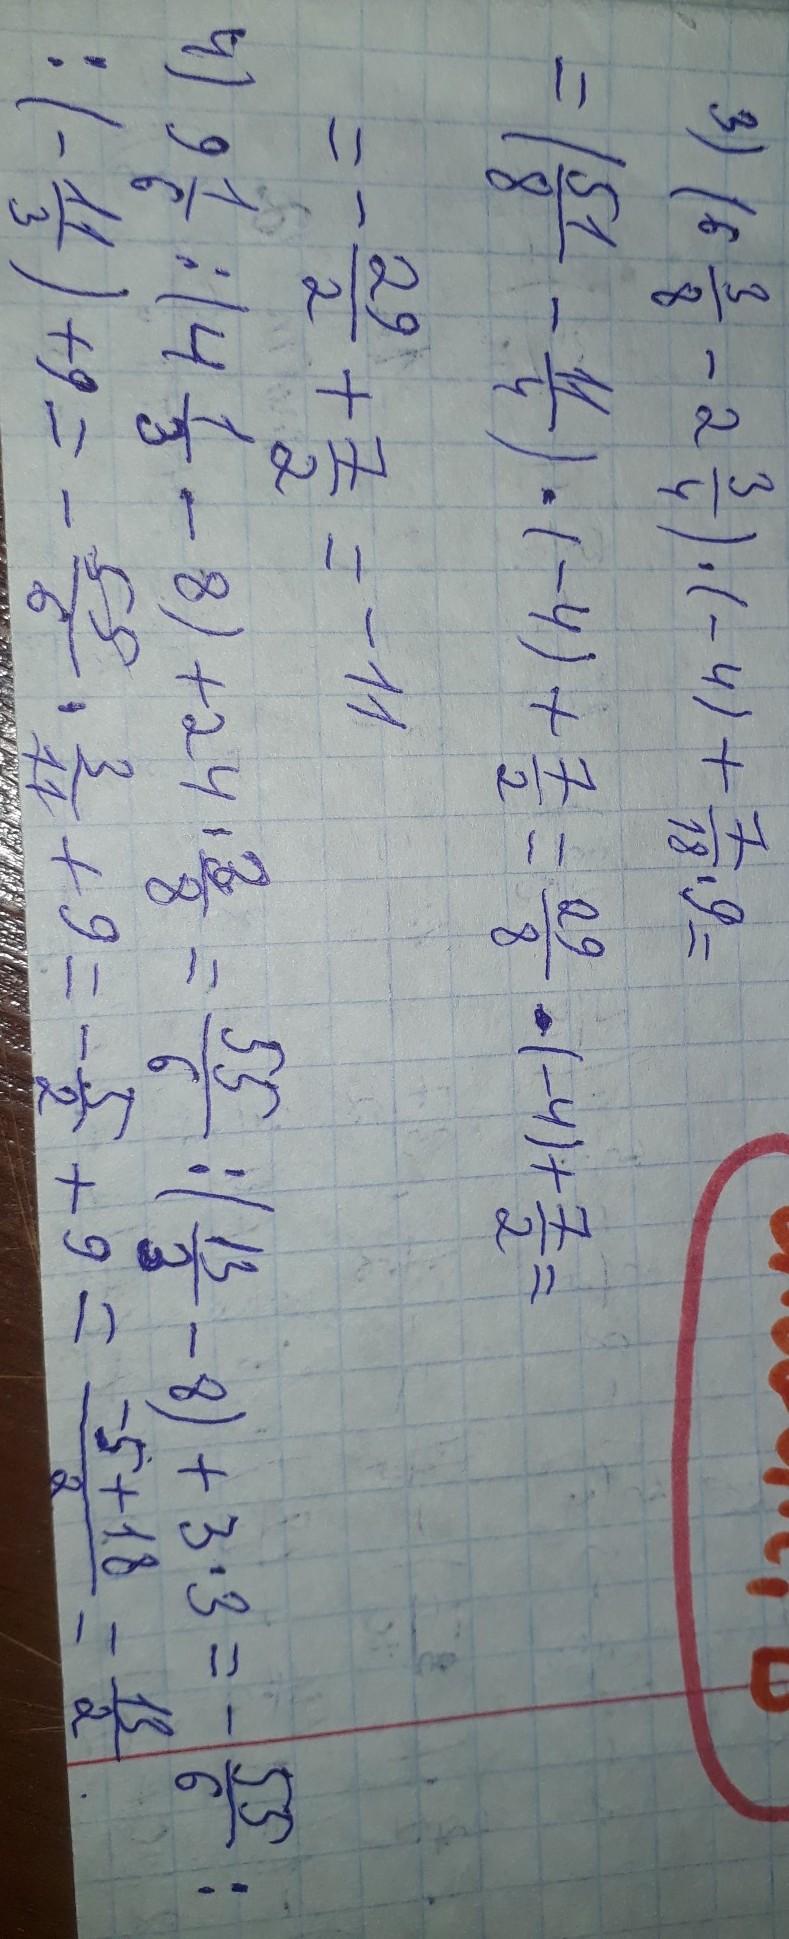 3) (6 3/8 - 2 3/4) · (-4) + 7/18 · 9 =
= (51/8 - 11/4) · (-4) + 7/2 = 29/8 · (-4) + 7/2 =
= - 29/2 + 7/2 = -11
4) 9 1/6 : (4 1/3 - 8) + 24 · 3/8 = 55/6 : (13/3 - 8) + 3 · 3 = - 55/6 :
: (- 11/3) + 9 = - 55/6 · 3/11 + 9 = - 5/2 + 9 = (-5+18)/2 = 13/2